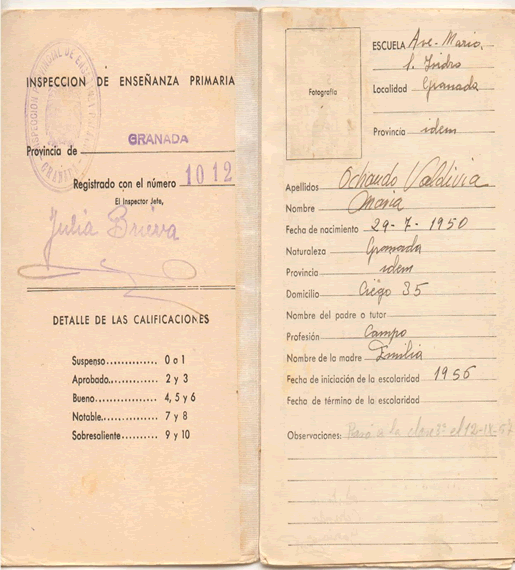 INSPECCION DE ENSEÑANZA PRIMARIA
Provincia de GRANADA
Registrado con el número 1012
El Inspector Jefe,
Julia Brieva
DETALLE DE LAS CALIFICACIONES
Suspenso............... 0 a 1
Aprobado............... 2 y 3
Bueno............... 4, 5 y 6
Notable............... 7 y 8
Sobresaliente.......... 9 y 10
Fotografía
ESCUELA Ave-Maria,
S. Isidro
Localidad Granada
Provincia idem
Apellidos Ochando Valdivia
Nombre Maria
Fecha de nacimiento 29-7-1950
Naturaleza Granada
Provincia idem
Domicilio Ciego 35
Nombre del padre o tutor
Profesión Campo
Nombre de la madre Emilia
Fecha de iniciación de la escolaridad 1956
Fecha de término de la escolaridad
Observaciones: Pasó a la clase 3ª el